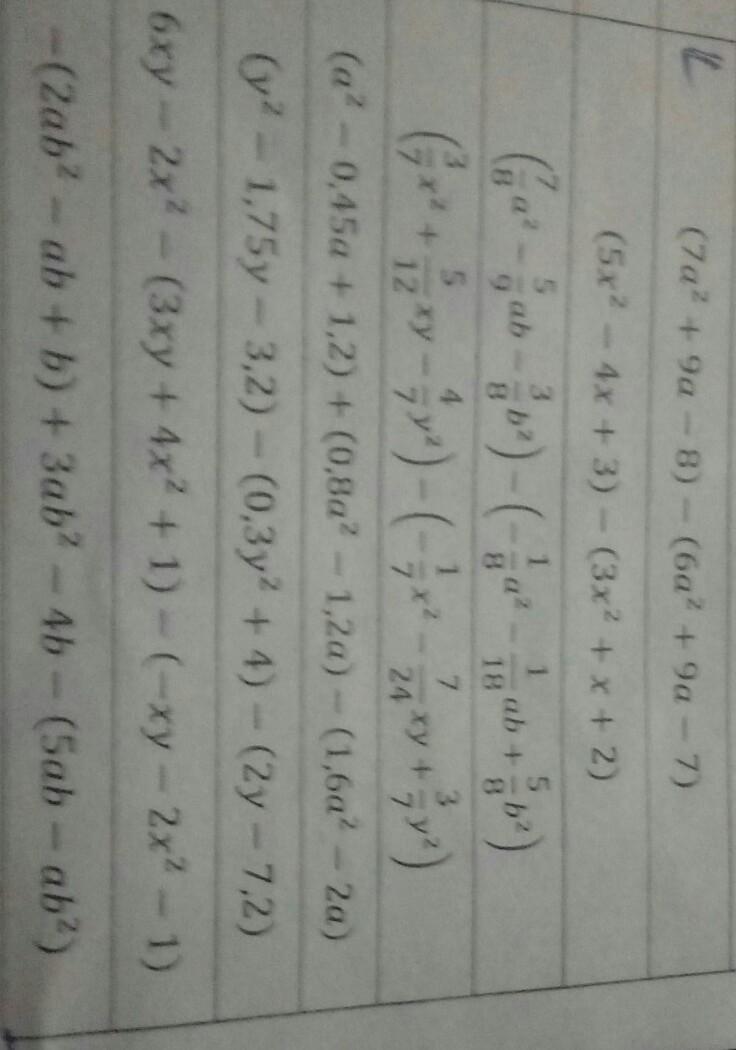 (7a² + 9a − 8) − (6a² + 9a − 7)
(5x² − 4x + 3) − (3x² + x + 2)
(7/8 a² − 5/9 ab − 3/8 b²) − (−1/8 a² − 1/18 ab + 5/8 b²)
(3/7 x² + 5/12 xy − 4/7 y²) − (−1/7 x² − 7/24 xy + 3/7 y²)
(a² − 0,45a + 1,2) + (0,8a² − 1,2a) − (1,6a² − 2a)
(y² − 1,75y − 3,2) − (0,3y² + 4) − (2y − 7,2)
6xy − 2x² − (3xy + 4x² + 1) − (−xy − 2x² − 1)
−(2ab² − ab + b) + 3ab² − 4b − (5ab − ab²)